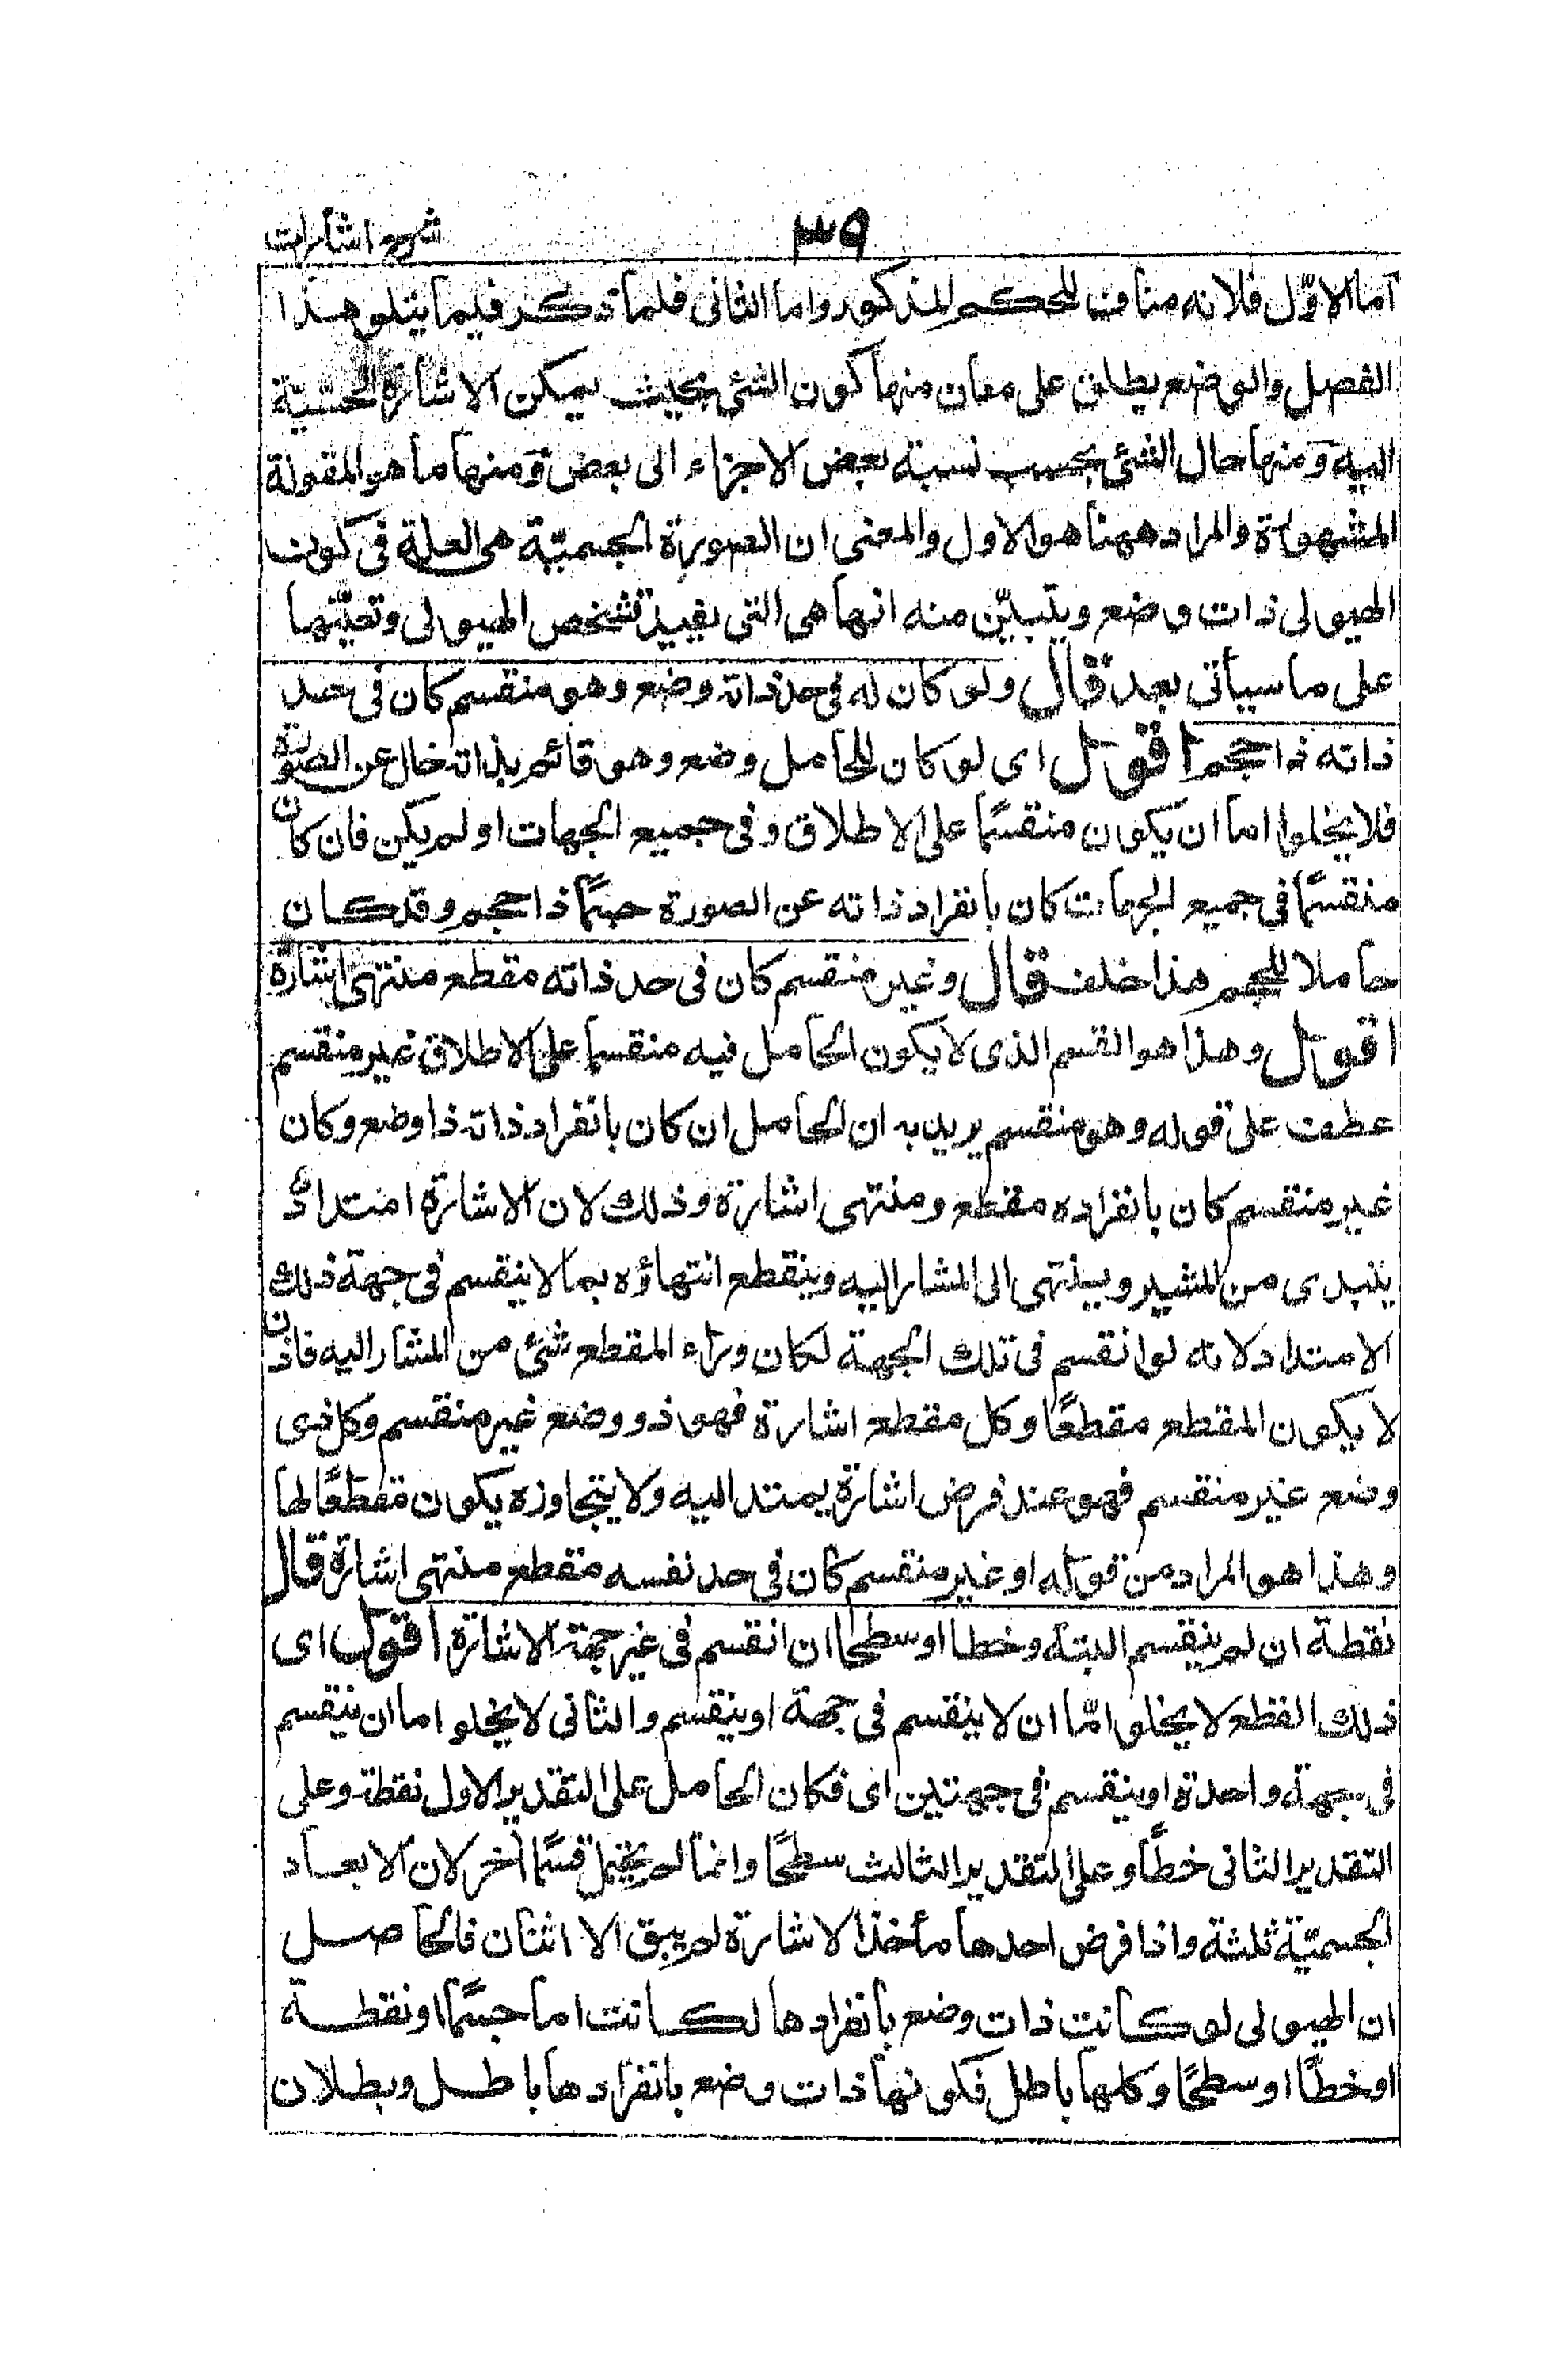 ٣٩
شرح اشارات
اما الاوّل فلانه مناف للحكم المذكور واما الثانى فلما تذكر فيما يتلو هذا
الفصل والوضع يطلق على معان منها كون الشئ بحيث يمكن الاشارة الحسّيّة
اليه ومنها حال الشئ بحسب نسبة بعض الاجزاء الى بعض ومنها ما هو المقولة
المشهورة والمراد ههنا هو الاول والمعنى ان الصورة الجسميّة هى العلة فى كون
الهيولى ذات وضع ويتبيّن منه انها هى التى يفيد تشخص الهيولى وتعيّنها
على ما سيأتى بعد قال ولو كان له فى حد ذاته وضع وهو منقسم كان فى حد
ذاته ذا حجم اقول اى لو كان للحامل وضع وهو قائم بذاته خال عن الصورة
فلا يخلوا اما ان يكون منقسمًا على الاطلاق وفى جميع الجهات او لم يكن فان كان
منقسمًا فى جميع الجهات كان بانفراد ذاته عن الصورة جسمًا ذا حجم وقد كان
حاملا للحجم هذا خلف قال وغير منقسم كان فى حد ذاته مقطع منتهى اشارة
اقول وهذا هو القسم الذى لا يكون الحامل فيه منقسما على الاطلاق غير منقسم
عطف على قوله وهو منقسم يريد به ان الحامل ان كان بانفراد ذاته ذا وضع وكان
غير منقسم كان بانفراده مقطع ومنتهى اشارة وذلك لان الاشارة امتدادٌ
يبتدى من المشير وينتهى الى المشار اليه وينقطع انتهاؤه بما لا ينقسم فى جهة ذلك
الامتداد لانه لو انقسم فى تلك الجهة لكان وراء المقطع شئ من المشار اليه فاذن
لا يكون المقطع مقطعًا وكل مقطع اشارة فهو ذو وضع غير منقسم وكل ذى
وضع غير منقسم فهو عند فرض اشارة يمتد اليه ولا يتجاوزه يكون مقطعًا لها
وهذا هو المراد من قوله او غير منقسم كان فى حد نفسه مقطع منتهى اشارة قال
نقطة ان لم ينقسم البتة وخطا او سطحا ان انقسم فى غير جهة الاشارة اقول اى
ذلك القطع لا يخلو امّا ان لا ينقسم فى جهة او ينقسم والثانى لا يخلو اما ان ينقسم
فى جهة واحدة او ينقسم فى جهتين اى فكان الحامل على التقدير الاول نقطة وعلى
التقدير الثانى خطًّا وعلى التقدير الثالث سطحًا وانما لم يحتمل قسمًا آخر لان الابعاد
الجسميّة ثلثة واذا فرض احدها مأخذ الاشارة لم يبق الا اثنان فالحاصل
ان الهيولى لو كانت ذات وضع بانفرادها لكانت اما جسمًا او نقطة
او خطًّا او سطحًا وكلها باطل فكونها ذات وضع بانفرادها باطل وبطلان